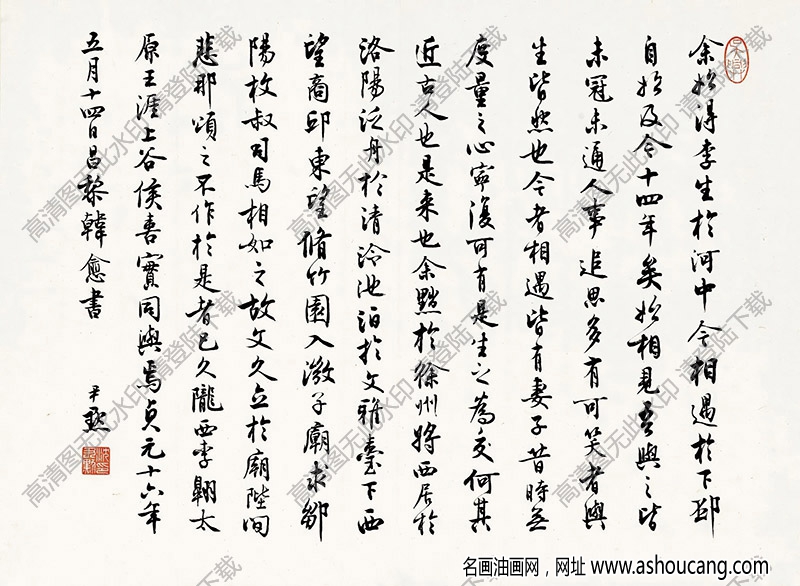 余始得李生於河中今相遇於下邳
自始及今十四年矣始相見吾與之皆
未冠未通人事追思多有可笑者與
生皆然也今者相遇皆有妻子昔時無
度量之心寧復可有是生之為交何其
近古人也是来也余黜於徐州將西居於
洛陽泛舟於清泠池泊於文雅臺下西
望商邱東望脩竹園入微子廟求鄒
陽枚叔司馬相如之故文久立於廟陛间
悲那頌之不作於是者已久隴西李翱太
原王涯上谷侯喜實同與焉貞元十六年
五月十四日昌黎韓愈書
尹默
高清图无此水印 请登陆下载
名画油画网，网址 www.ashoucang.com